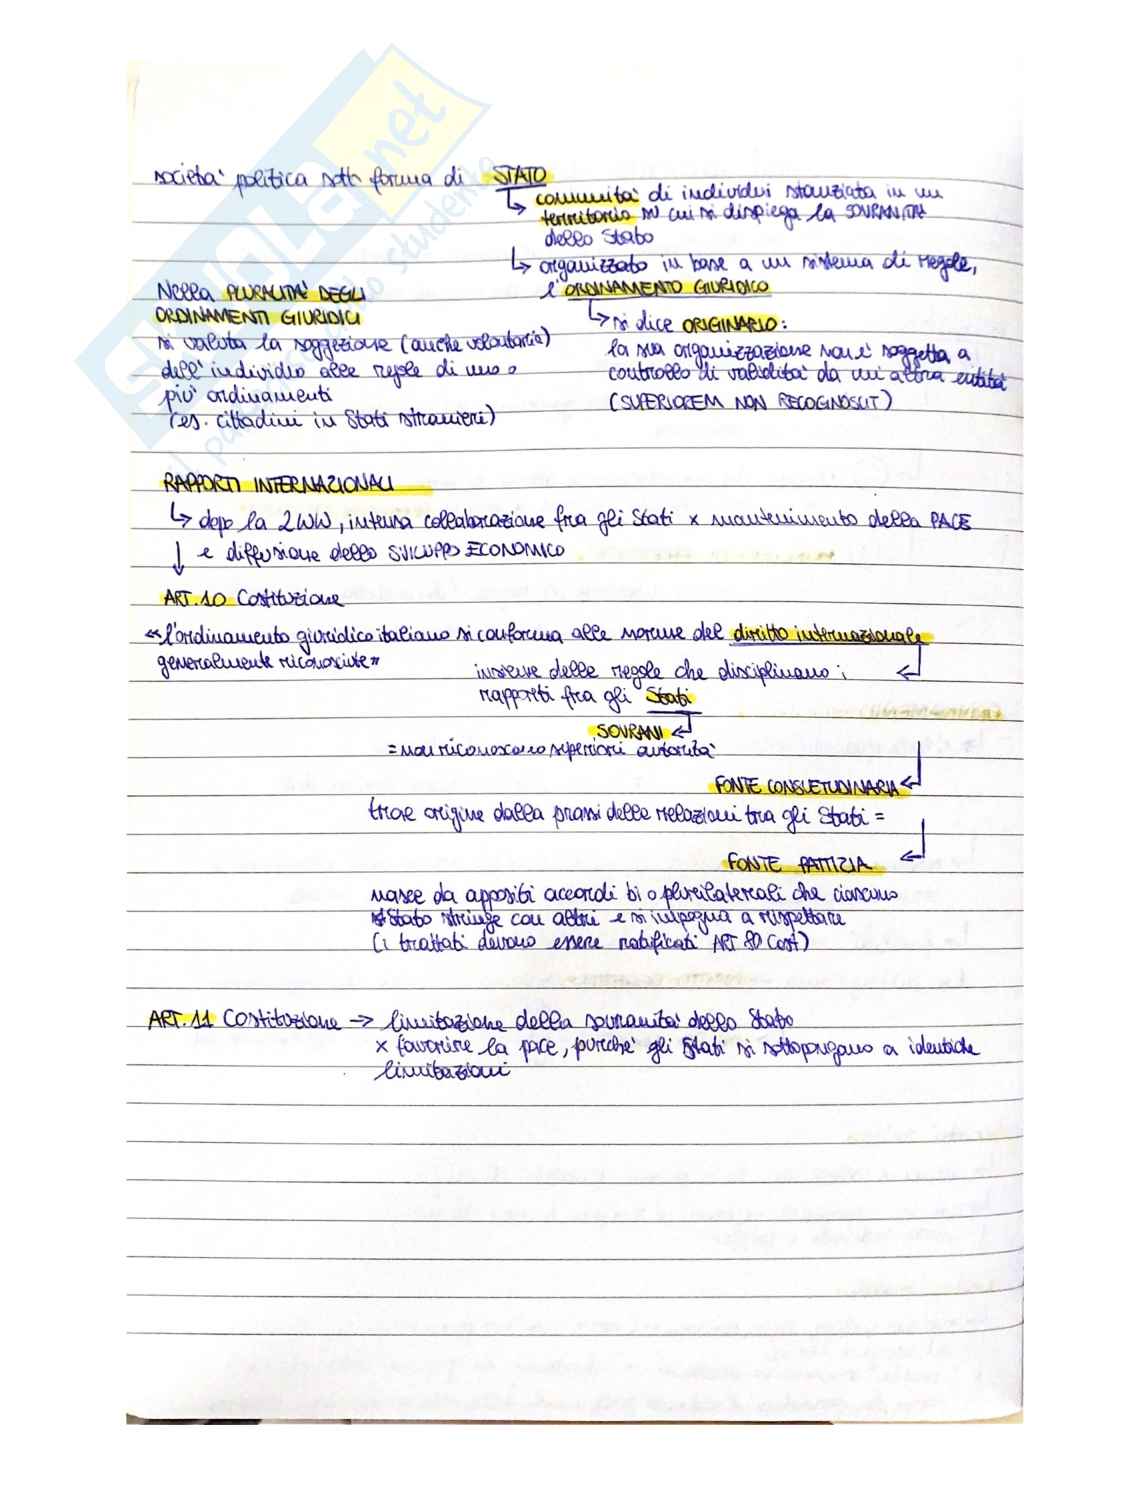 società politica sotto forma di STATO
↳ comunità di individui stanziata in un
territorio su cui si dispiega la SOVRANITÀ
dello Stato
↳ organizzato in base a un sistema di regole,
l'ORDINAMENTO GIURIDICO
↳ si dice ORIGINARIO:
la sua organizzazione non è soggetta a
controllo di validità da un'altra entità
(SUPERIOREM NON RECOGNOSCIT)
Nella PLURALITÀ DEGLI
ORDINAMENTI GIURIDICI
si valuta la soggezione (anche volontaria)
dell'individuo alle regole di uno o
più ordinamenti
(es. cittadini in Stati stranieri)
RAPPORTI INTERNAZIONALI
↳ dopo la 2WW, intensa collaborazione fra gli Stati x mantenimento della PACE
↓ e diffusione dello SVILUPPO ECONOMICO
ART.10 Costituzione
"l'ordinamento giuridico italiano si conforma alle norme del diritto internazionale
generalmente riconosciute"
insieme delle regole che disciplinano i
rapporti fra gli Stati
SOVRANI
= non riconoscono superiori autorità
FONTE CONSUETUDINARIA
trae origine dalla prassi delle relazioni tra gli Stati =
FONTE PATTIZIA
nasce da appositi accordi bi o plurilaterali che ciascuno
Stato stringe con altri e si impegna a rispettare
(i trattati devono essere ratificati ART 80 Cost)
ART. 11 Costituzione → limitazione della sovranità dello Stato
x favorire la pace, purché gli Stati si sottopongano a identiche
limitazioni